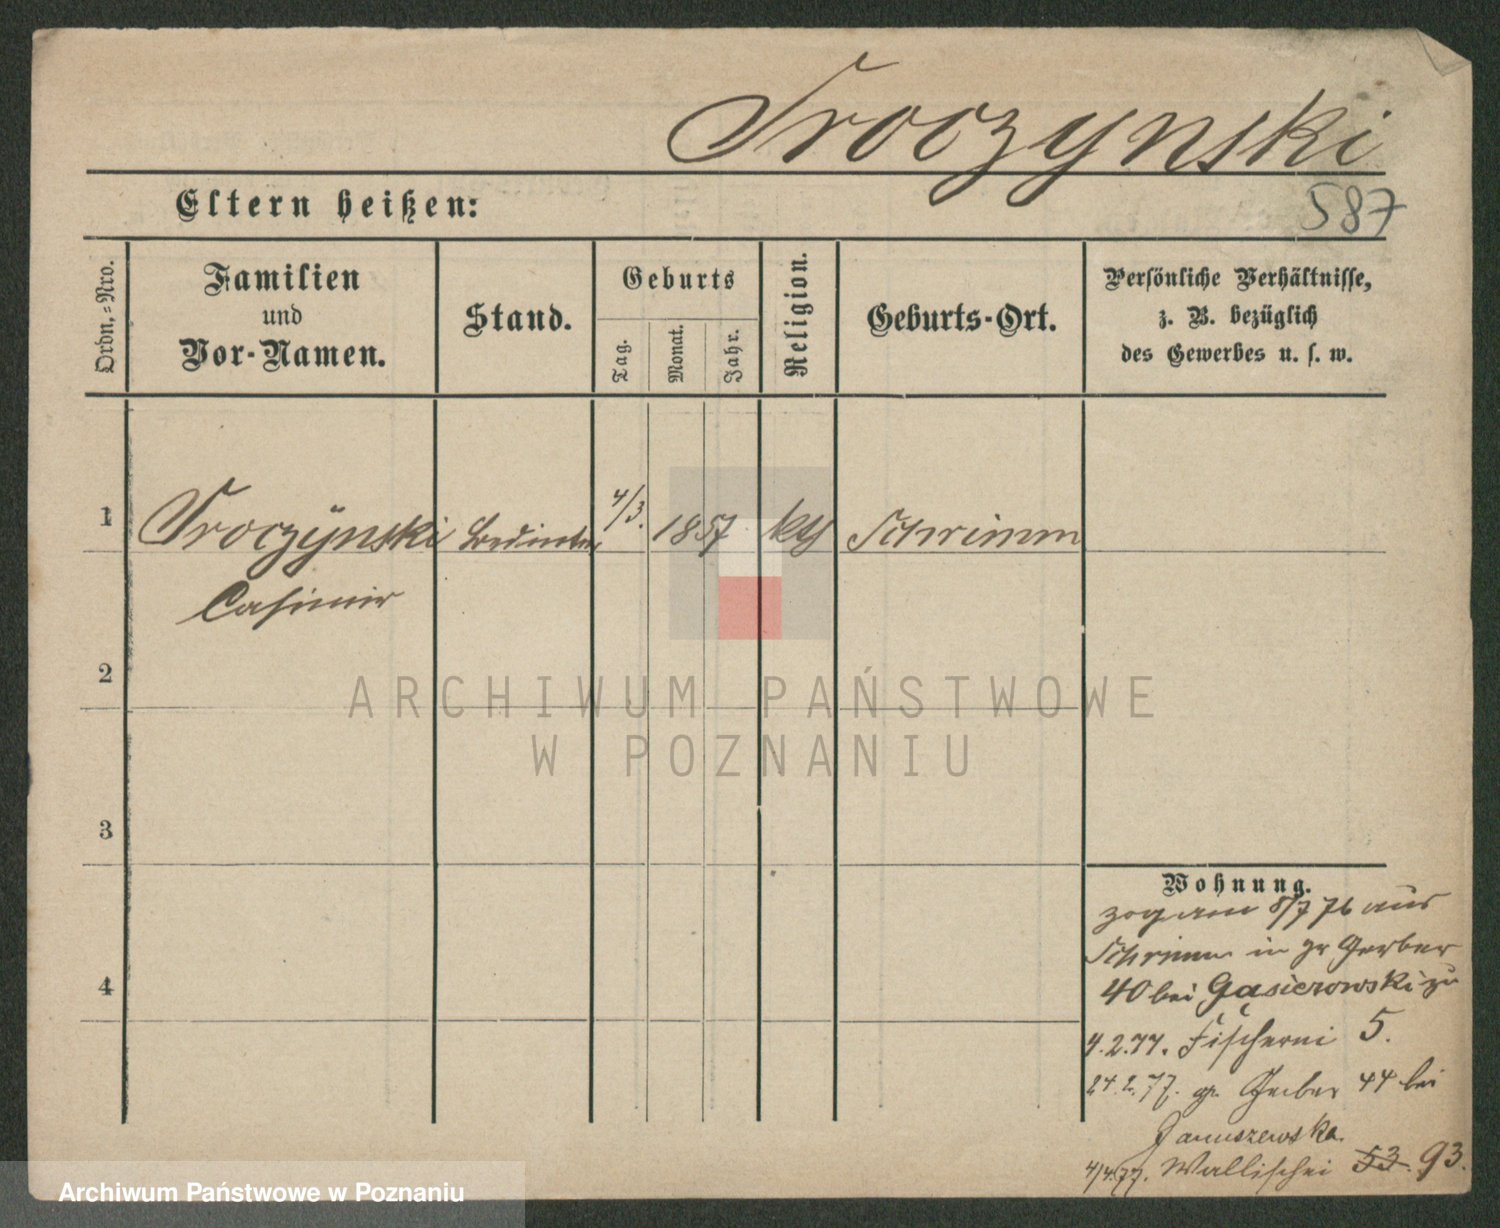 Troczynski
Eltern heißen:
587
Ordn.-Nro.
Familien
und
Vor-Namen.
Stand.
Geburts
Tag.
Monat.
Jahr.
Religion.
Geburts-Ort.
Persönliche Verhältnisse,
z. B. bezüglich
des Gewerbes u. s. w.
1 Troczÿnski Bedienter 4/3. 1857 kth Schrimm
Casimir
2
3
4
ARCHIWUM PAŃSTWOWE
W POZNANIU
Wohnung.
zog am 8/7 76 aus
Schrimm in gr Gerber
40 bei Gasierowski zu
4.2.77. Fischerei 5.
24.2.77. gr Gerber 44 bei
Januszewska.
4/4.77. Wallischei 53. 93.
Archiwum Państwowe w Poznaniu